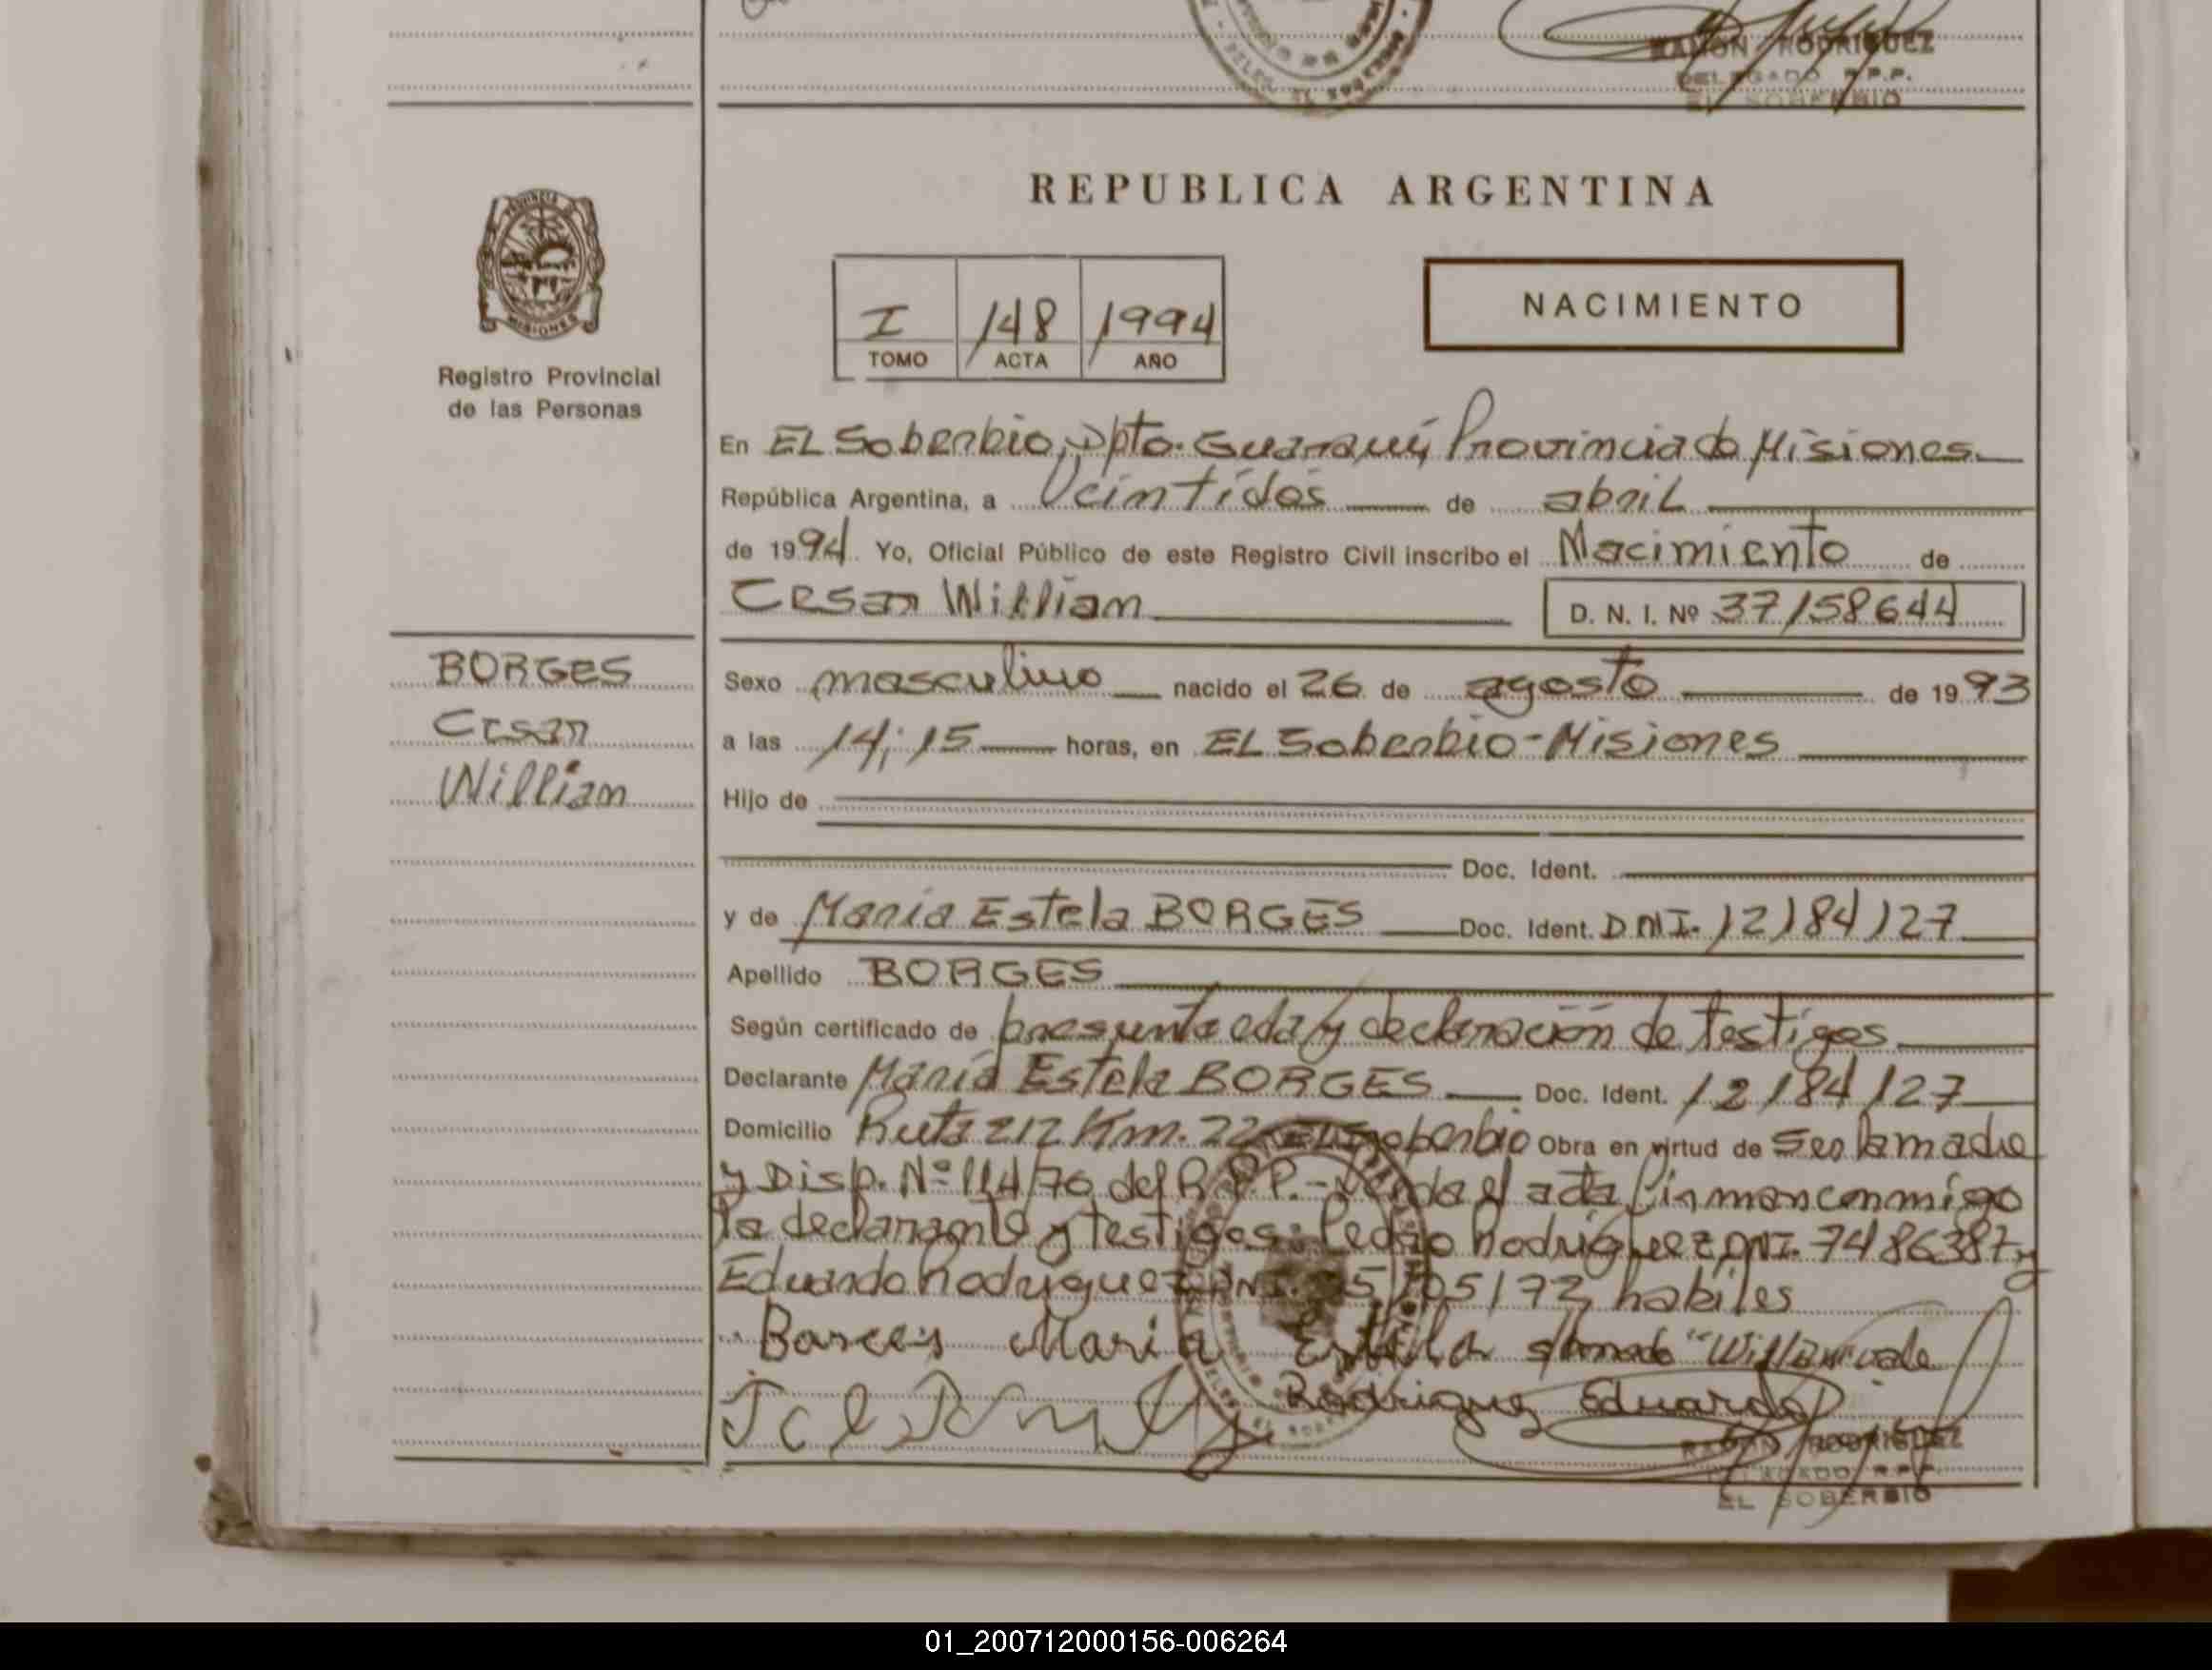 RAMON RODRIGUEZ
DELEGADO R.P.P.
EL SOBERBIO
REPUBLICA ARGENTINA
PROVINCIA DE
MISIONES
Registro Provincial
de las Personas
I 148 1994
TOMO ACTA AÑO
NACIMIENTO
En EL Soberbio, Dpto. Guaraní, Provincia de Misiones.
República Argentina, a Veintidos de abril
de 1994 Yo, Oficial Público de este Registro Civil inscribo el Nacimiento de
Cesar Willian D. N. I. Nº 37158644
BORGES
Cesar
Willian
Sexo masculino nacido el 26 de agosto de 1993
a las 14:15 horas, en EL Soberbio-Misiones
Hijo de
Doc. Ident.
y de Maria Estela BORGES Doc. Ident. DNI. 12184127
Apellido BORGES
Según certificado de presunta edad y declaración de testigos
Declarante Maria Estela BORGES Doc. Ident. 12184127
Domicilio Ruta 212 Km. 22 EL Soberbio Obra en virtud de Ser la madre
y Disp. Nº 114/76 del R.P.P.- Leida el acta firman conmigo
la declarante y testigos: Pedro Rodriguez DNI. 7486387 y
Eduardo Rodriguez DNI. habiles
Maria Estela "Willian" vale
Rodriguez Eduardo
RAMON RODRIGUEZ
DELEGADO R.P.P.
EL SOBERBIO
01_200712000156-006264